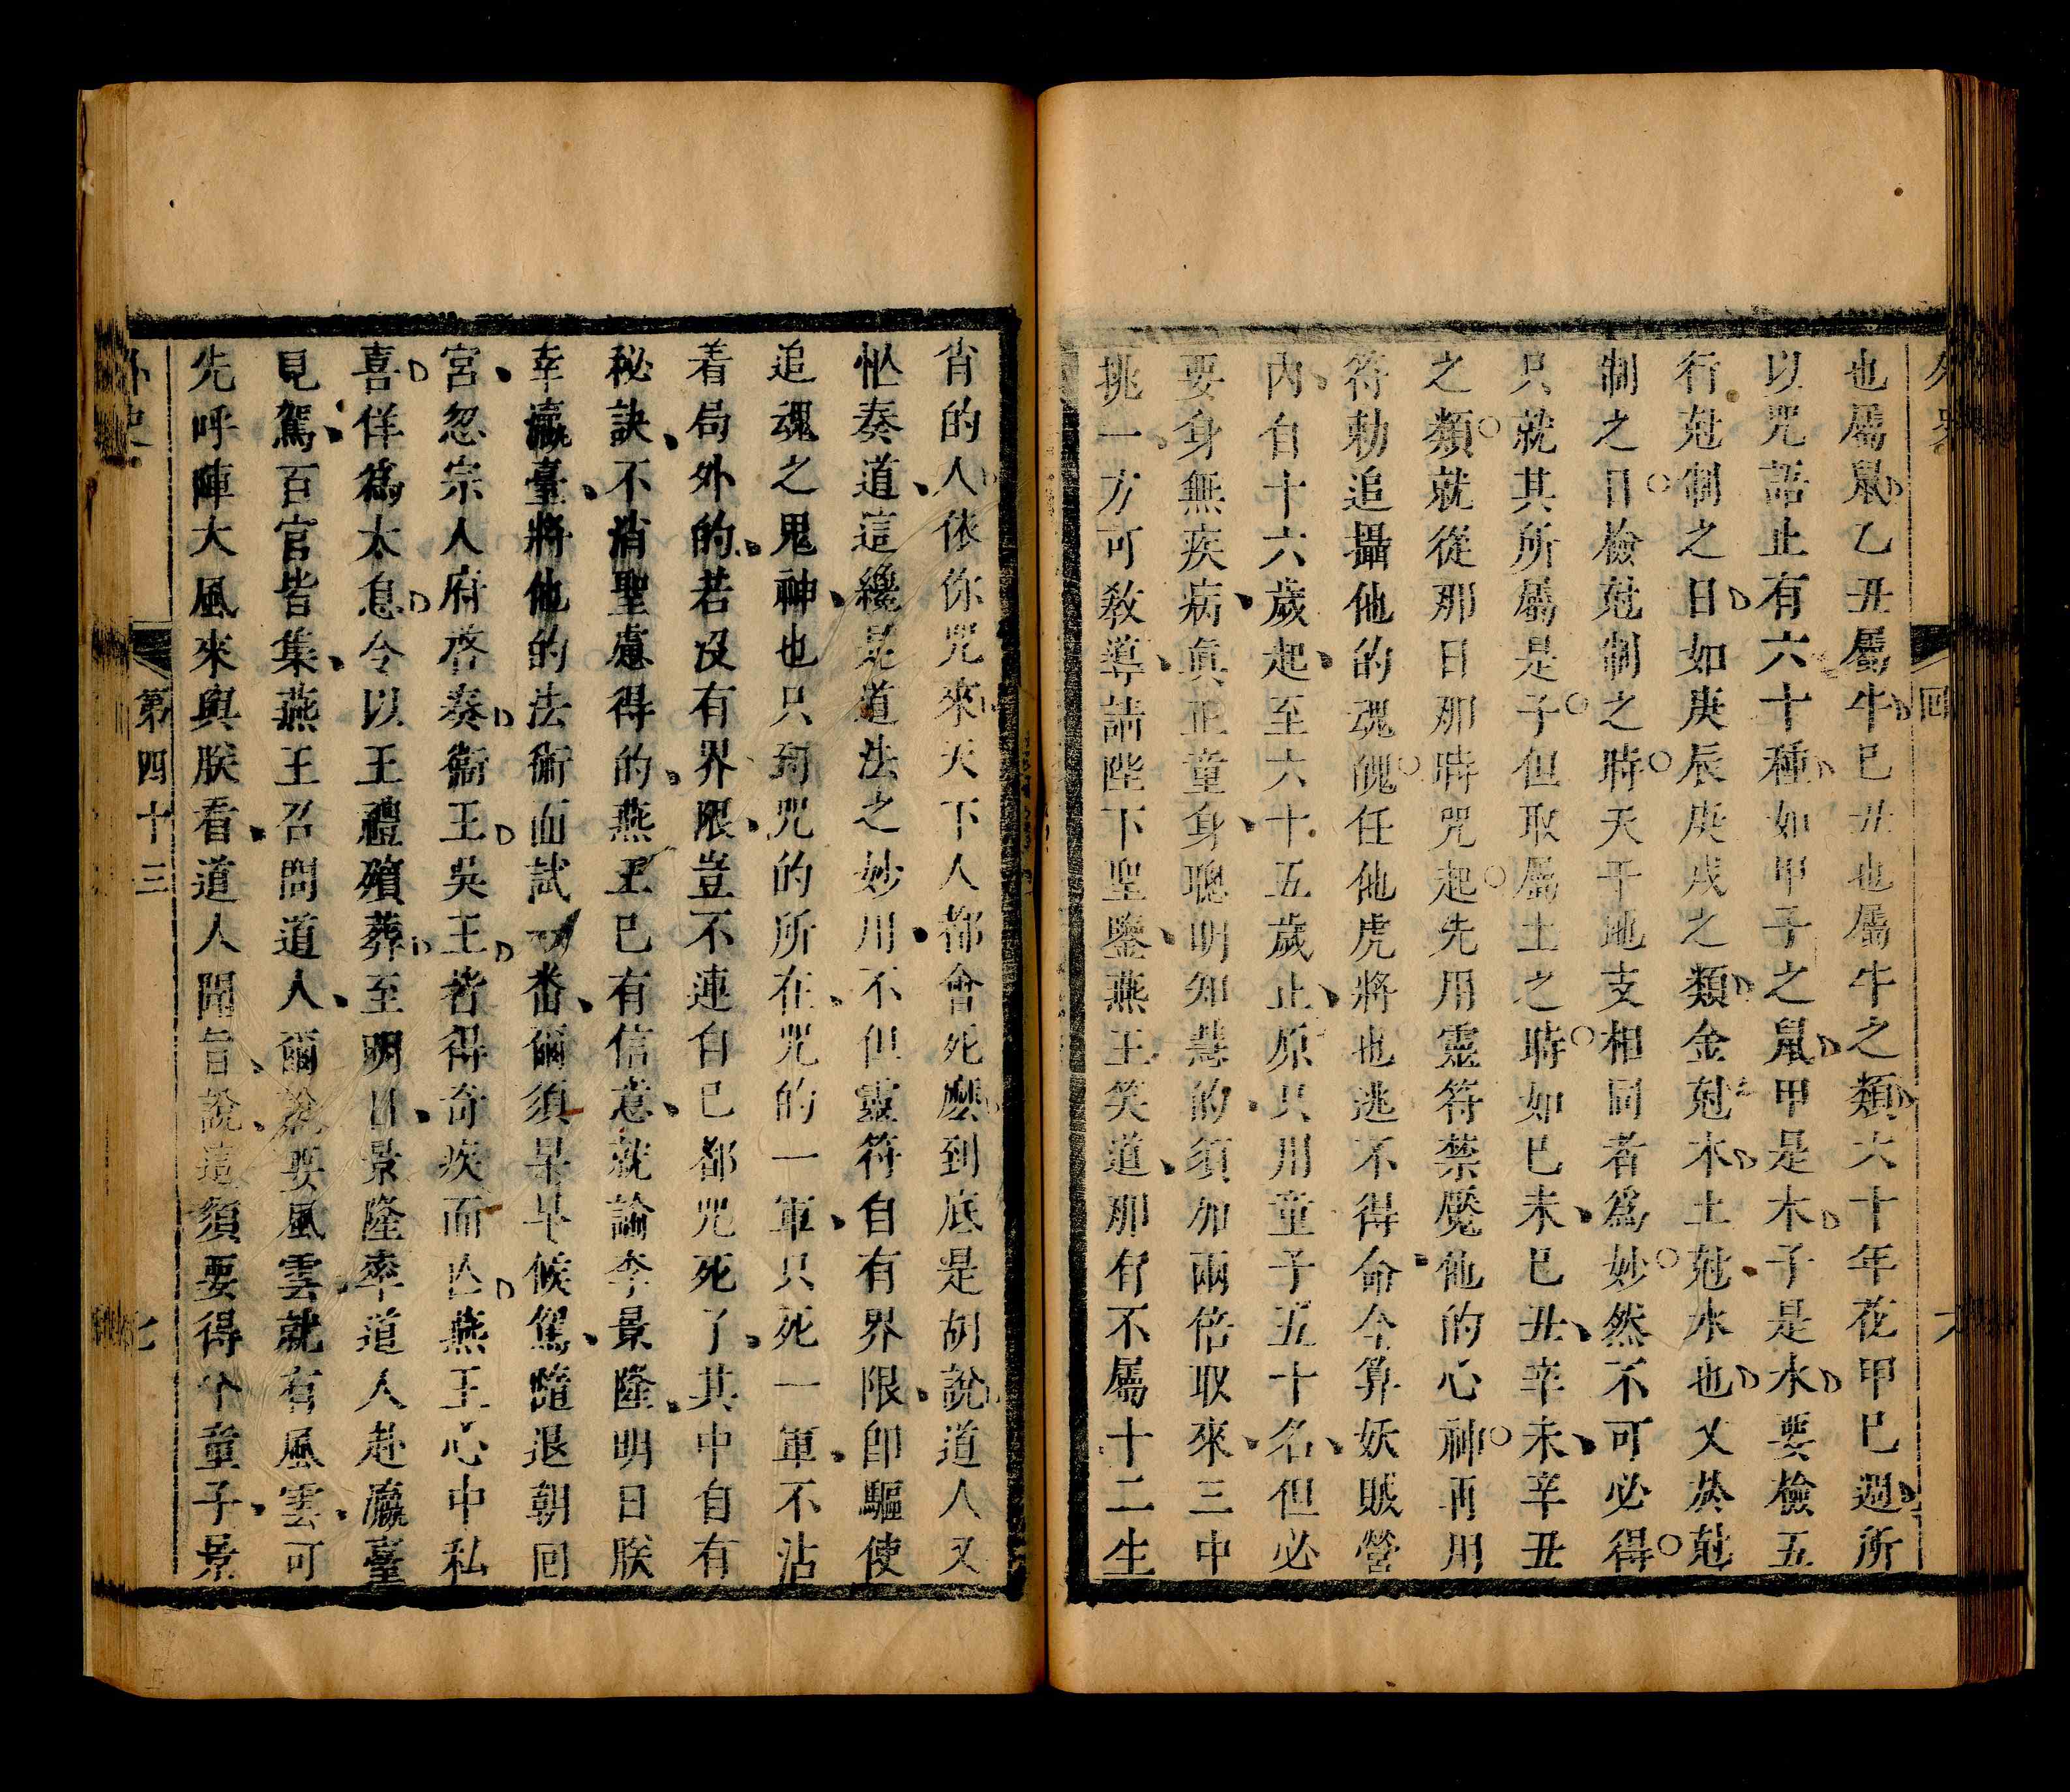 也屬鼠乙丑屬牛巳丑也屬牛之類六十年花甲巳週所
以咒語止有六十種如甲子之鼠甲是木子是水要檢五
行尅制之日如庚辰庚戌之類金尅木土尅水也又於尅
制之日檢尅制之時天干地支相同者爲妙然不可必得
只就其所屬是子但取屬土之時如巳未巳丑辛未辛丑
之類就從那日那時咒起先用靈符禁魘他的心神再用
符勅追攝他的魂魄任他虎將也逃不得命今算妖賊營
內自十六歲起至六十五歲止原只用童子五十名但必
要身無疾病眞正童身聰明知慧的須加兩倍取來三中
挑一方可敎導請陛下聖鑒燕王笑道那有不屬十二生
肖的人依你咒來天下人都會死麽到底是胡說道人又
忙奏道這纔是道法之妙用不但靈符自有界限卽驅使
追魂之鬼神也只到咒的所在咒的一軍只死一軍不沾
着局外的若沒有界限豈不連自巳都咒死了其中自有
秘訣不消聖慮得的燕王巳有信意就諭李景隆明日朕
幸瀛臺將他的法術面試一畨爾須早早候駕隨退朝囘
宮忽宗人府啓奏衞王吳王皆得奇疾而亾燕王心中私
喜佯爲太息令以王禮殯葬至明日景隆率道人赴瀛臺
見駕百官皆集燕王召問道人爾說要風雲就有風雲可
先呼陣大風來與朕看道人聞旨說這須要得个童子景
外史
第四十三
七